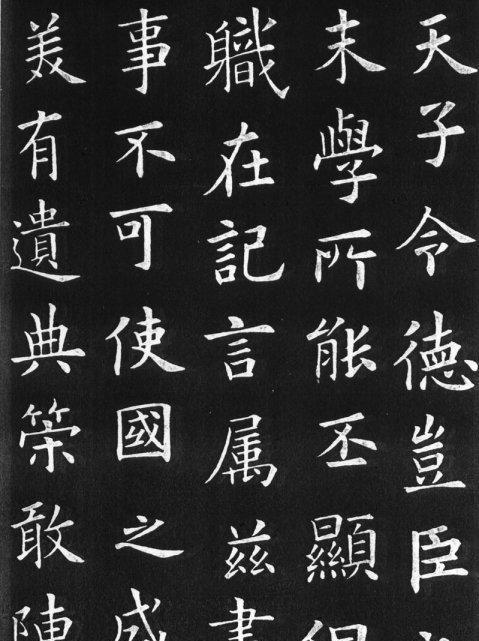 天子令德豈臣
末學所能丕顯但
軄在記言属兹書
事不可使國之盛
美有遺典策敢陳